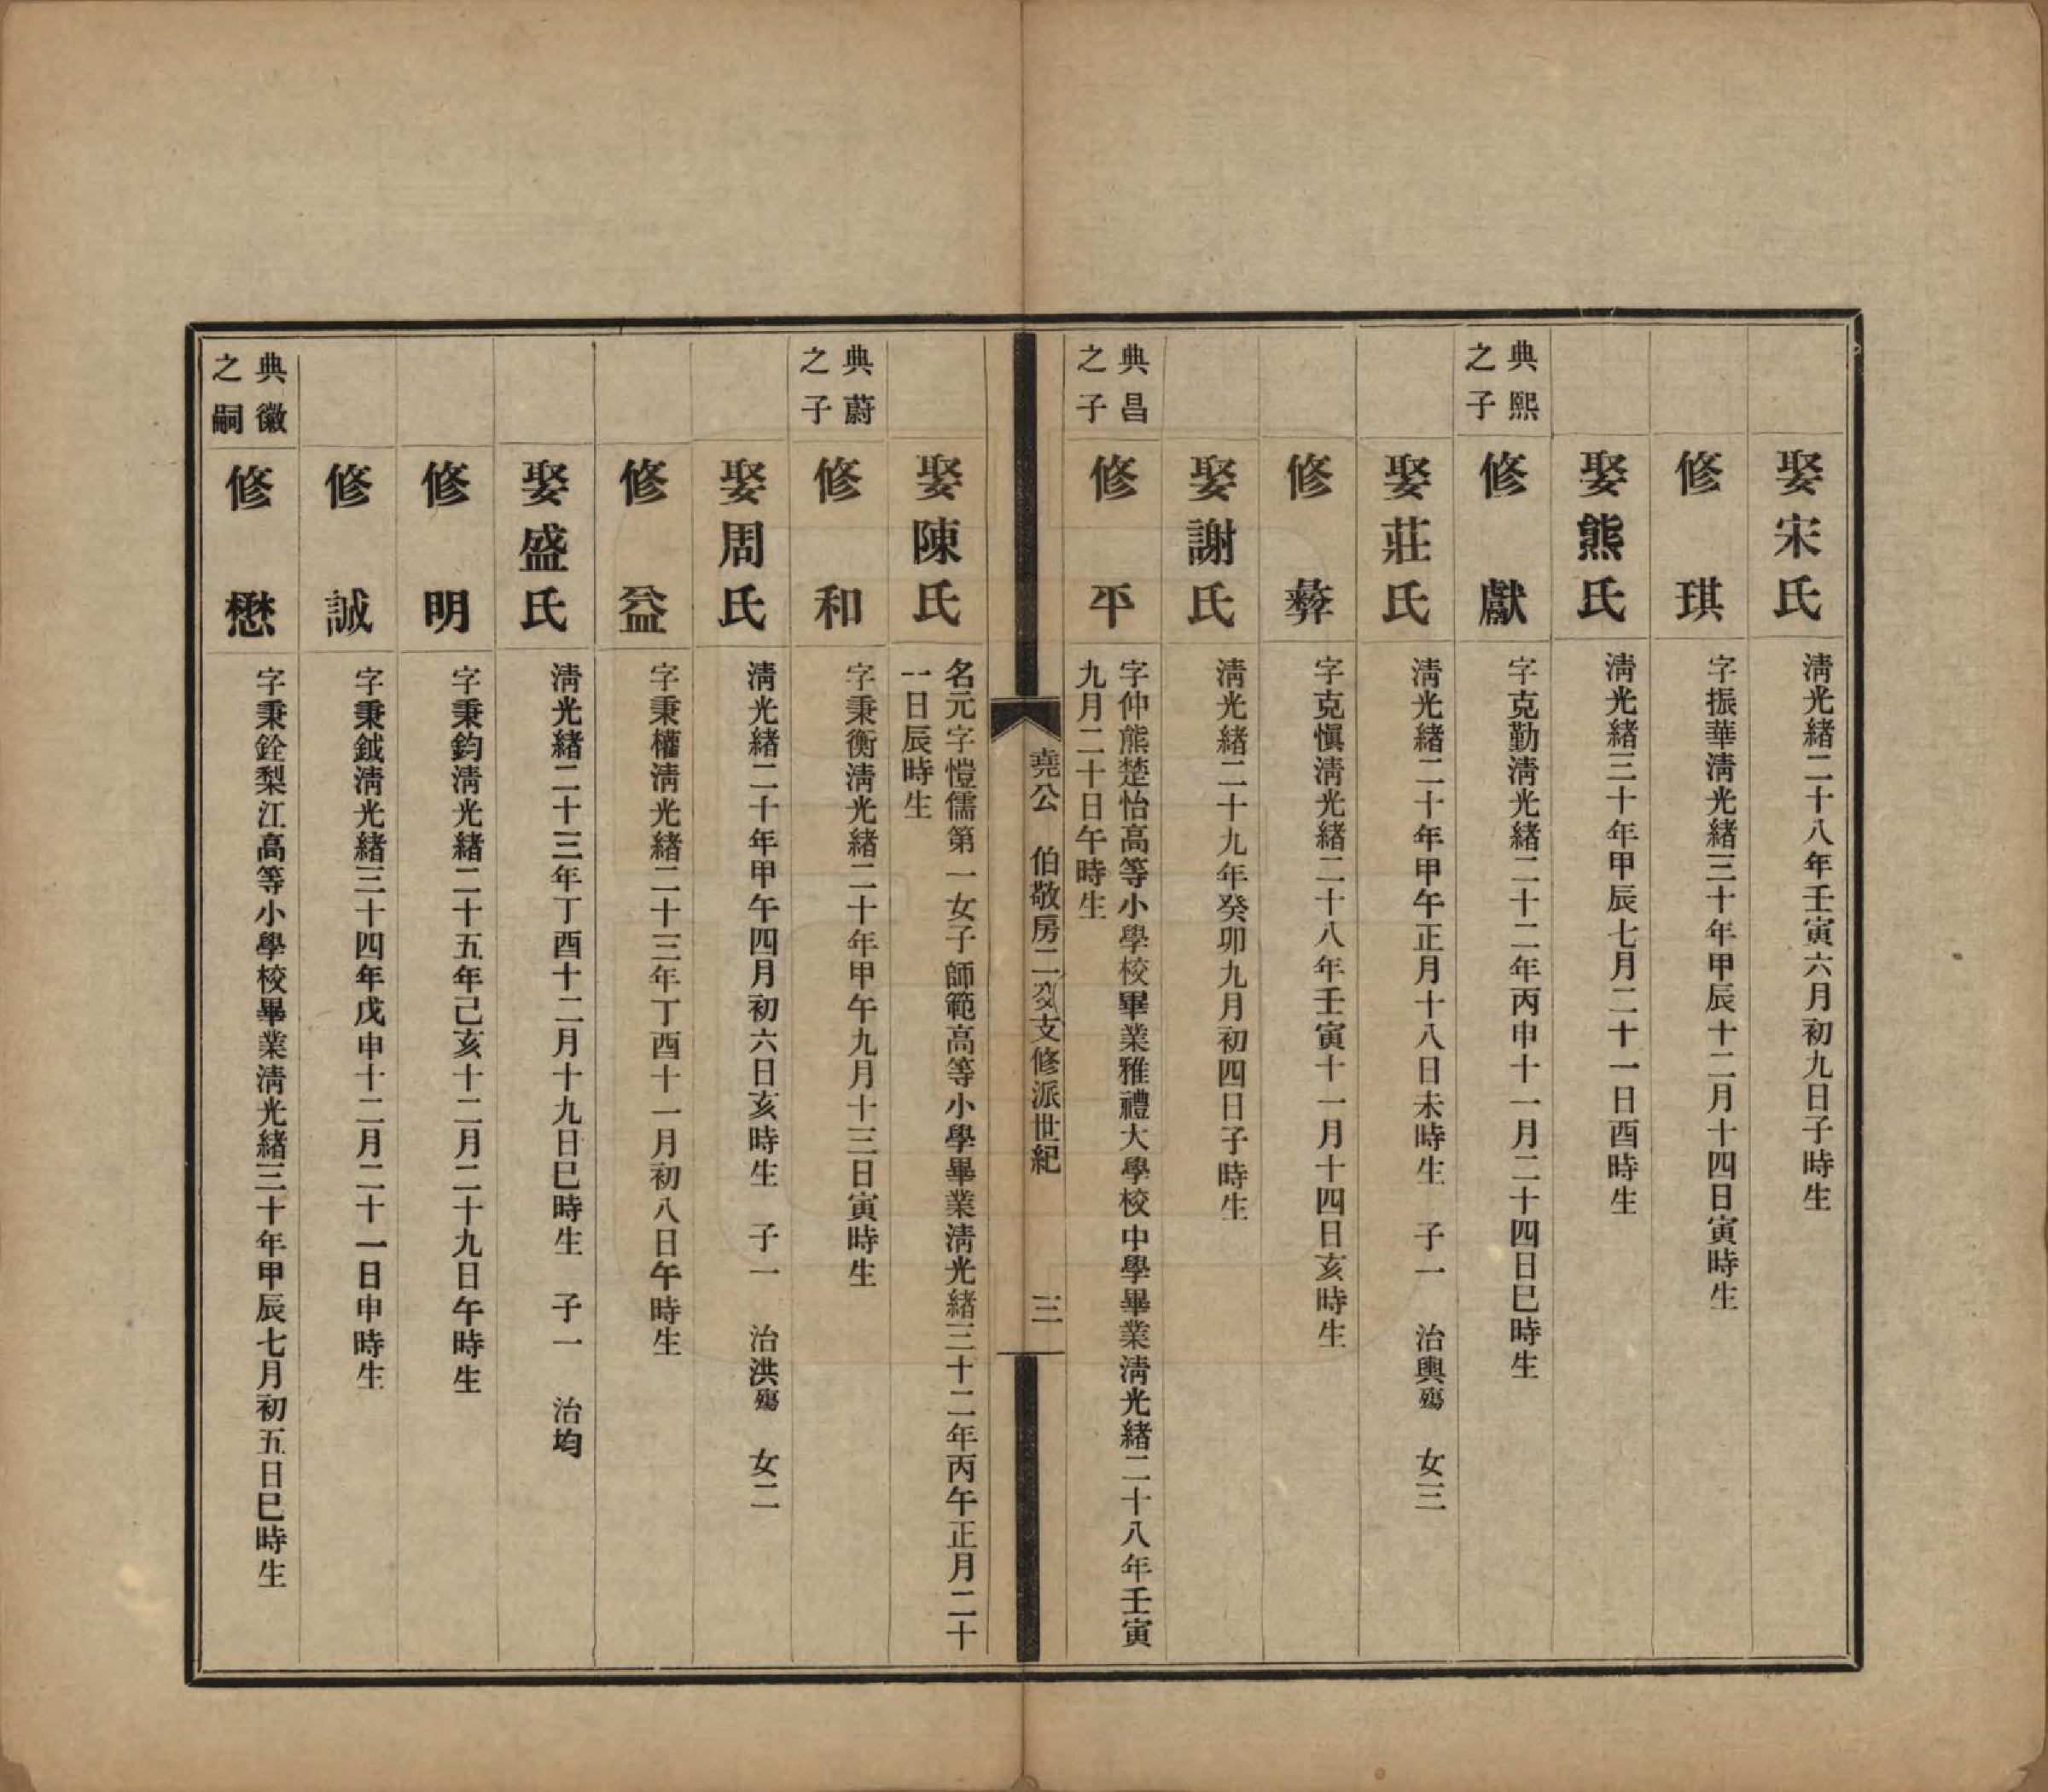 娶宋氏
清光緒二十八年壬寅六月初九日子時生
修琪
字振華清光緒三十年甲辰十二月十四日寅時生
娶熊氏
清光緒三十年甲辰七月二十一日酉時生
典熙
之子
修獻
字克勤清光緒二十二年丙申十一月二十四日巳時生
娶莊氏
清光緒二十年甲午正月十八日未時生　子一　治輿殤　女三
修彜
字克愼清光緒二十八年壬寅十一月十四日亥時生
娶謝氏
清光緒二十九年癸卯九月初四日子時生
典昌
之子
修平
字仲熊楚怡高等小學校畢業雅禮大學校中學畢業清光緒二十八年壬寅
九月二十日午時生
堯公　伯敬房二㚇支修派世紀　三
娶陳氏
名元字愷儒第一女子師範高等小學畢業清光緒三十二年丙午正月二十
一日辰時生
典蔚
之子
修和
字秉衡清光緒二十年甲午九月十三日寅時生
娶周氏
清光緒二十年甲午四月初六日亥時生　子一　治洪殤　女二
修益
字秉權清光緒二十三年丁酉十一月初八日午時生
娶盛氏
清光緒二十三年丁酉十二月十九日巳時生　子一　治均
修明
字秉鈞清光緒二十五年己亥十二月二十九日午時生
修誠
字秉鉞清光緒三十四年戊申十二月二十一日申時生
典徽
之嗣
修懋
字秉銓梨江高等小學校畢業清光緒三十年甲辰七月初五日巳時生